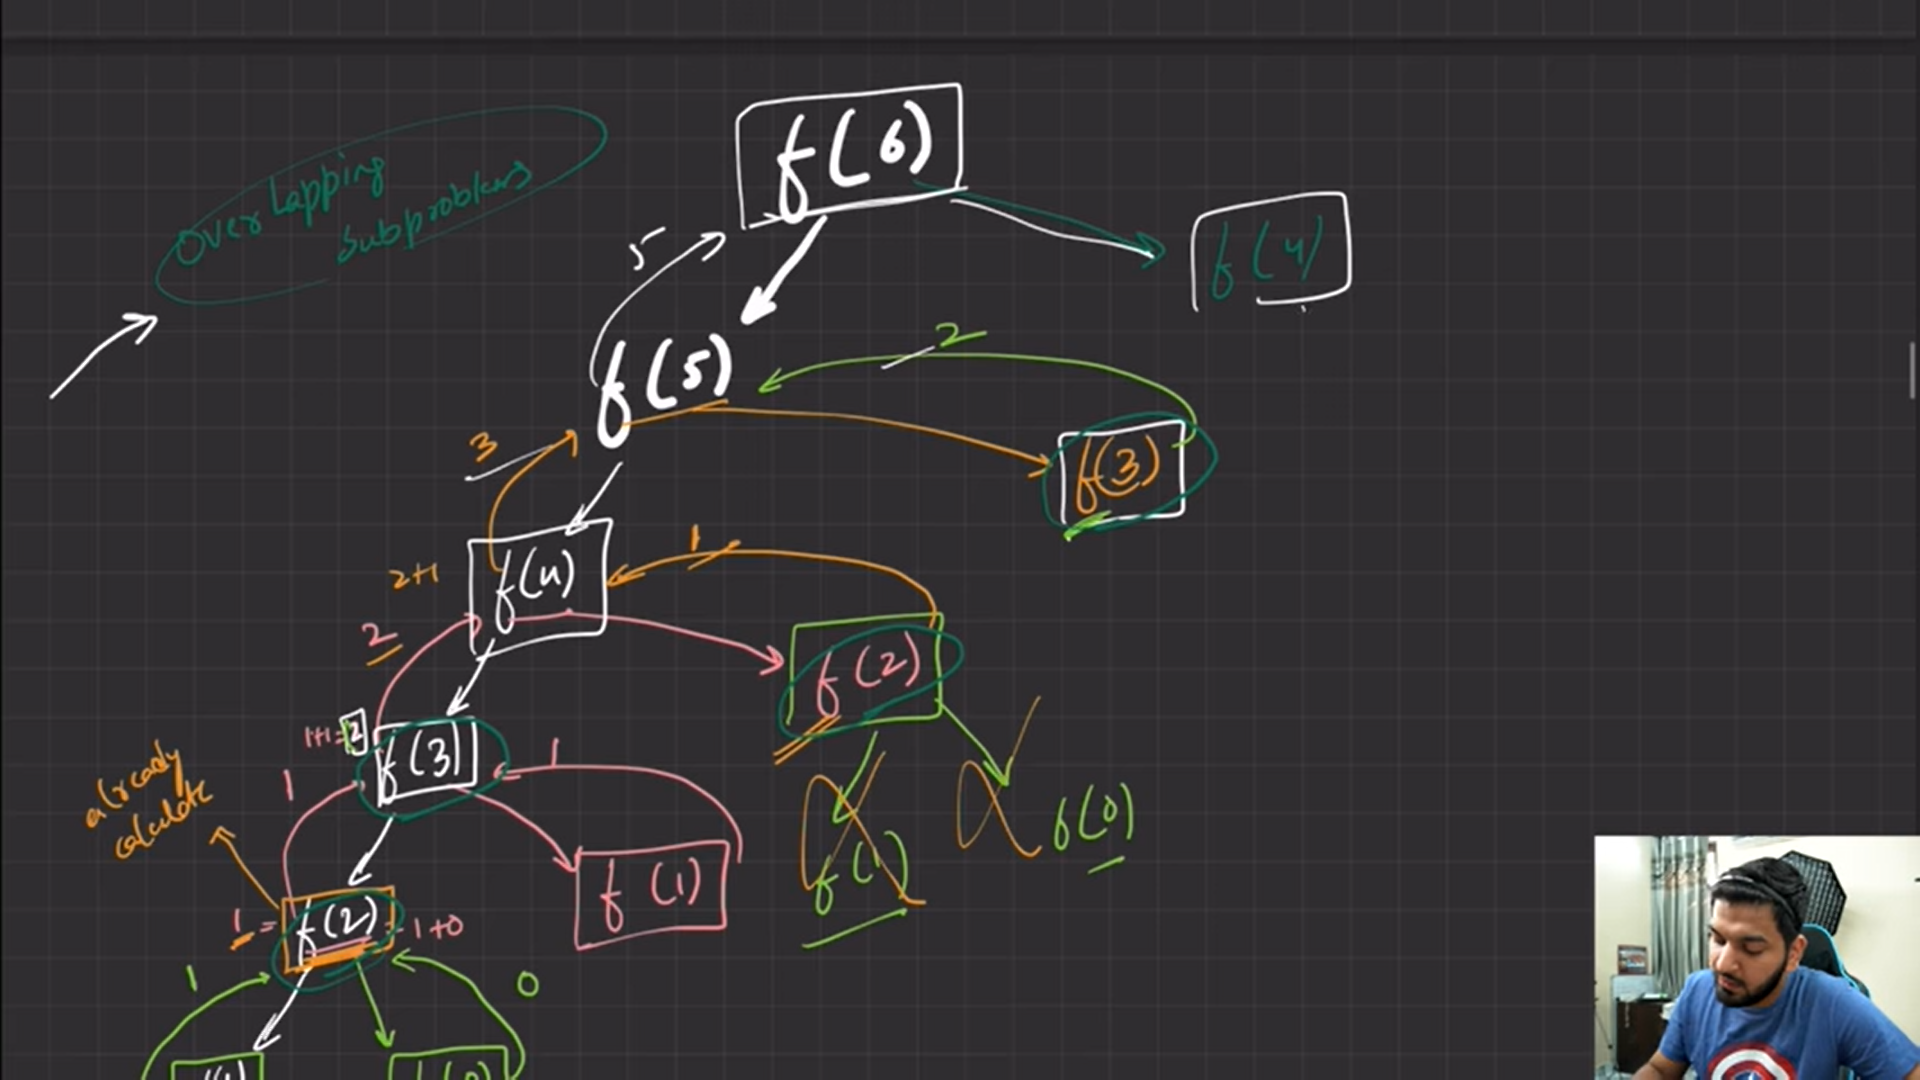 f(6)
Over Lapping
subproblems
f(4)
5
2
f(5)
3
f(3)
1
2+1
f(4)
2
f(2)
1+1=2
f(3)
1
1
already
calculate
f(0)
f(1)
f(1)
1 =
f(2)
= 1+0
1
0